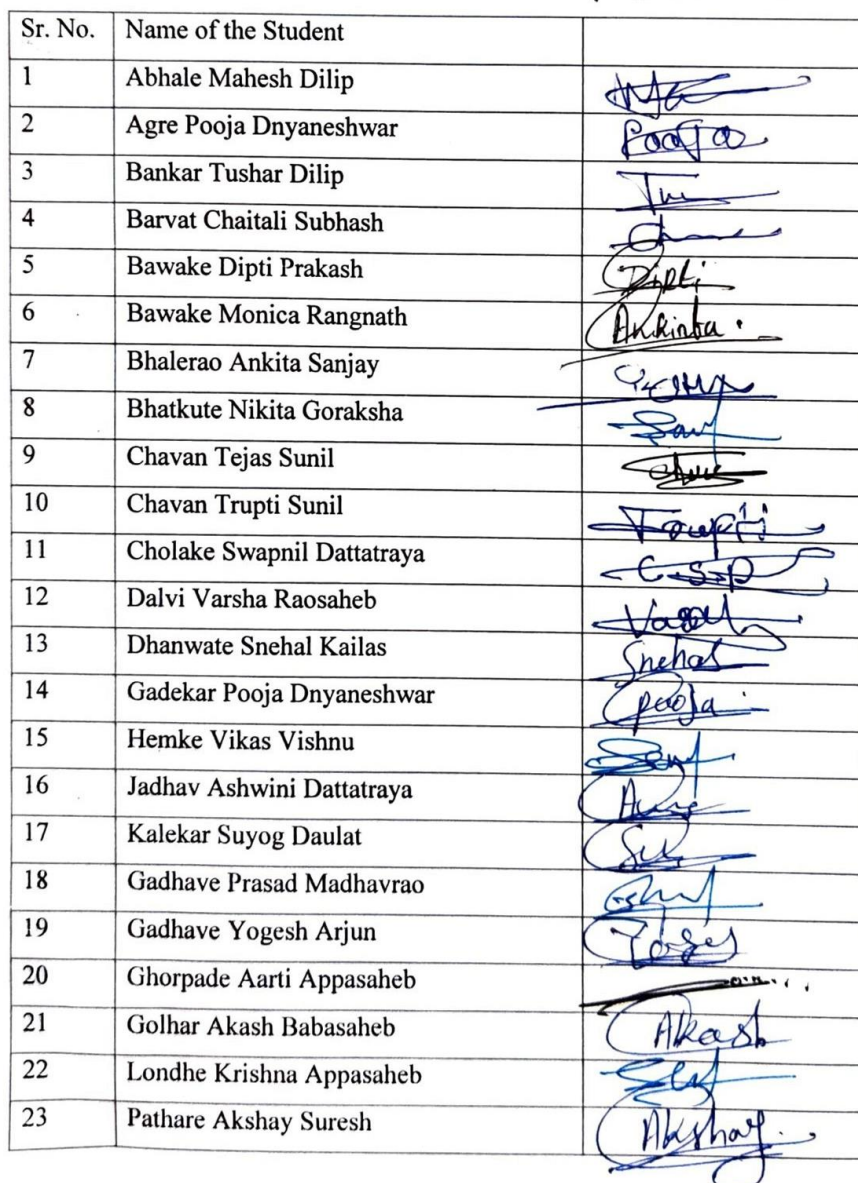 Sr. No. Name of the Student
1 Abhale Mahesh Dilip
2 Agre Pooja Dnyaneshwar Pooja
3 Bankar Tushar Dilip
4 Barvat Chaitali Subhash
5 Bawake Dipti Prakash Dipti
6 Bawake Monica Rangnath
7 Bhalerao Ankita Sanjay
8 Bhatkute Nikita Goraksha
9 Chavan Tejas Sunil
10 Chavan Trupti Sunil
11 Cholake Swapnil Dattatraya C.S.D
12 Dalvi Varsha Raosaheb
13 Dhanwate Snehal Kailas Snehal
14 Gadekar Pooja Dnyaneshwar Pooja
15 Hemke Vikas Vishnu
16 Jadhav Ashwini Dattatraya
17 Kalekar Suyog Daulat
18 Gadhave Prasad Madhavrao
19 Gadhave Yogesh Arjun
20 Ghorpade Aarti Appasaheb
21 Golhar Akash Babasaheb Akash
22 Londhe Krishna Appasaheb
23 Pathare Akshay Suresh Akshay